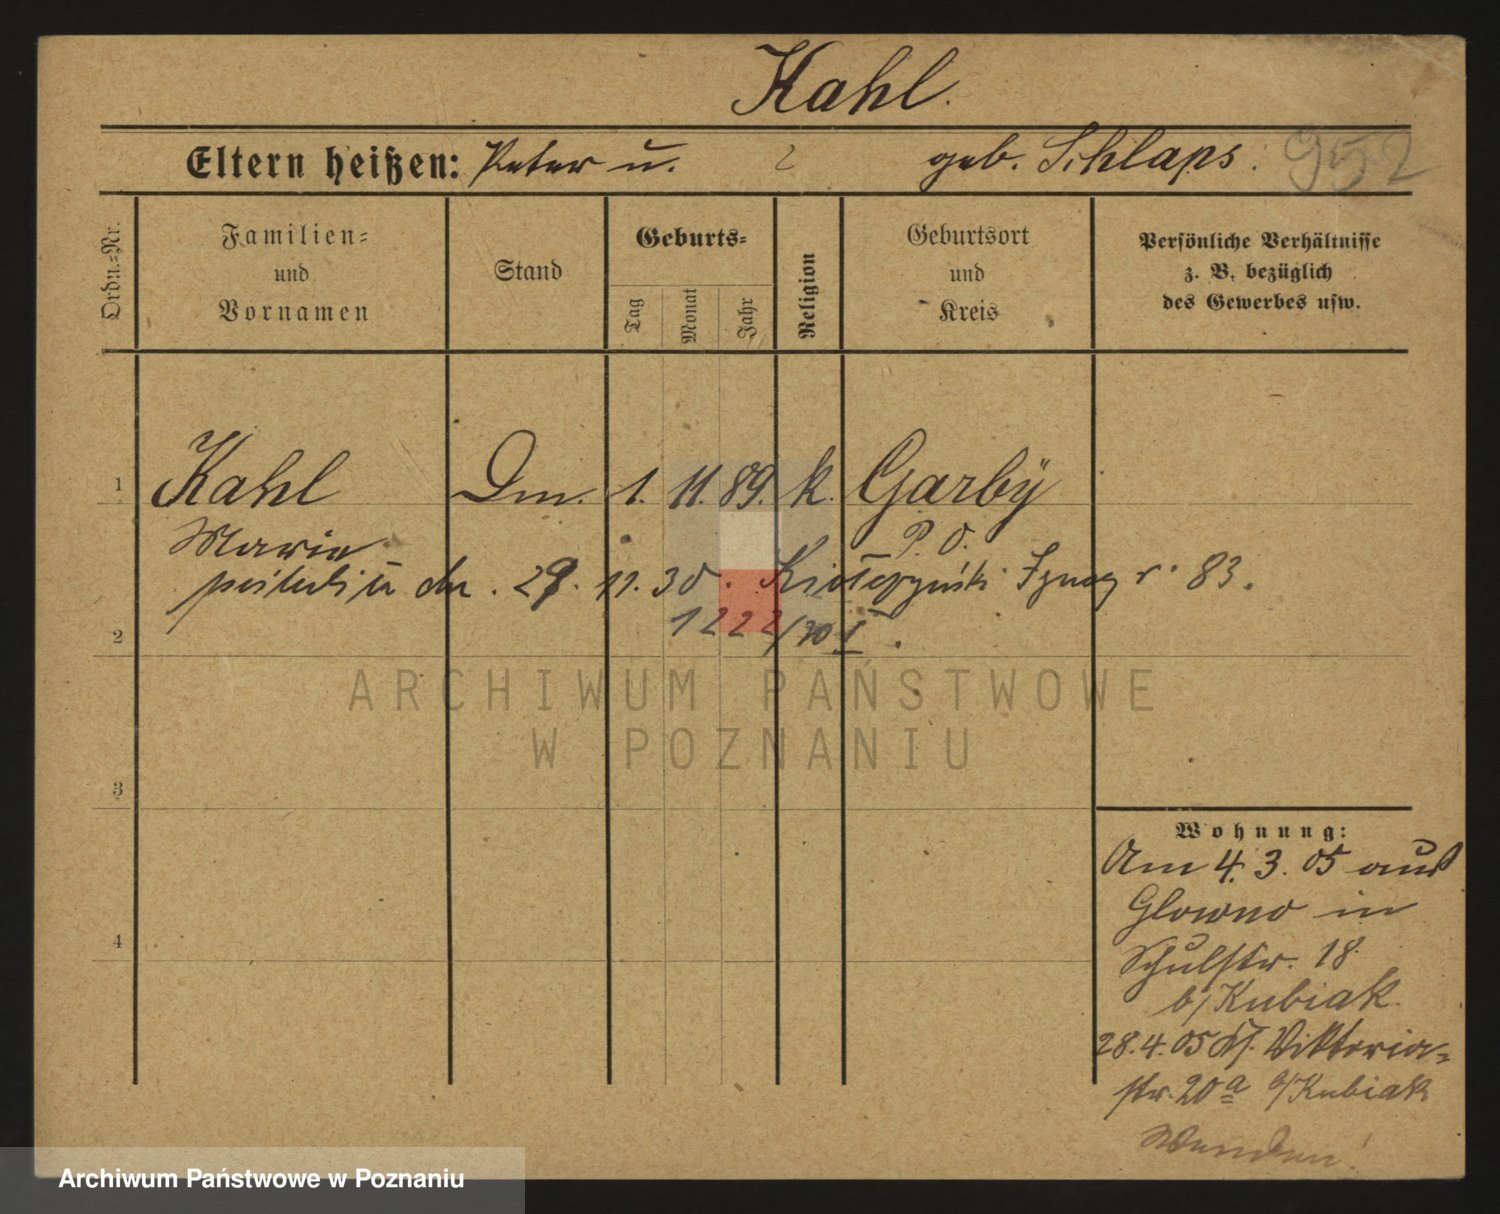 Kahl.
Eltern heißen: Peter u. ? geb. Schlaps.
952
Ordn.=Nr.
Familien=
und
Vornamen
Stand
Geburts=
Tag
Monat
Jahr
Religion
Geburtsort
und
Kreis
Persönliche Verhältnisse
z. B. bezüglich
des Gewerbes usw.
1 Kahl Dm. 1. 11. 89. k. Garbÿ
Marie P. O.
dn. 29. 11. 30. r. 83.
1222/30 I.
2
ARCHIWUM PAŃSTWOWE
W POZNANIU
3
4
Wohnung:
Am 4. 3. 05 aus
Glowno in
Schulstr. 18.
b/Kubiak
28. 4. 05 Viktoria=
str. 20a b/Kubiak
Wenden!
Archiwum Państwowe w Poznaniu